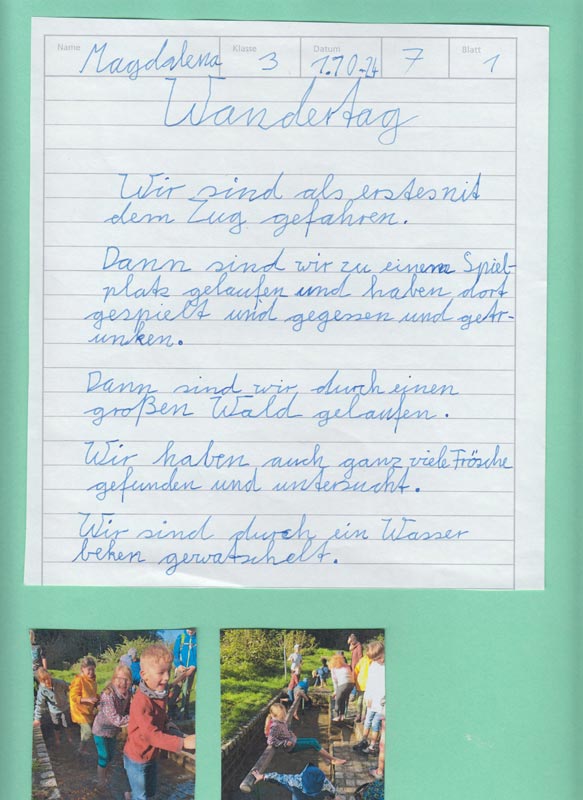 Name Magdalena Klasse 3 Datum 1.10.24 7 Blatt 1
Wandertag
Wir sind als erstes mit
dem Zug gefahren.
Dann sind wir zu einem Spiel-
platz gelaufen und haben dort
gespielt und gegessen und getr-
unken.
Dann sind wir durch einen
großen Wald gelaufen.
Wir haben auch ganz viele Frösche
gefunden und untersucht.
Wir sind durch ein Wasser
beken gewatschelt.